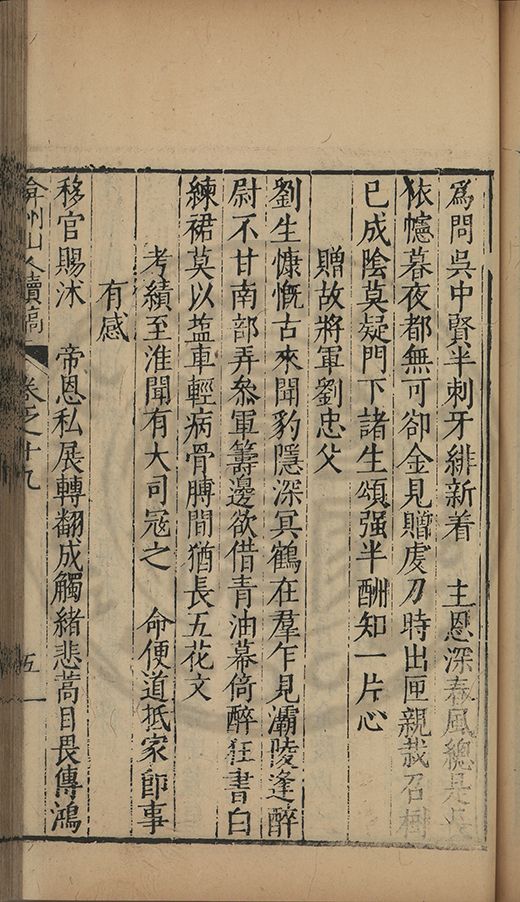 爲問吳中賢半刺牙緋新着　主恩深春風總是
依幰暮夜都無可卻金見贈虔刀時出匣親栽召樹
已成陰莫疑門下諸生頌强半酬知一片心
贈故將軍劉忠父
劉生慷慨古來聞豹隱深冥鶴在羣乍見灞陵逢醉
尉不甘南部弄叅軍籌邊欲借青油幕倚醉狂書白
練裙莫以盐車輕病骨膊間猶長五花文
考績至淮聞有大司冦之　命便道抵家卽事
有感
移官賜沐　帝恩私展轉翻成觸緒悲蒿目畏傳鴻
弇州山人續稿　卷之十九　五